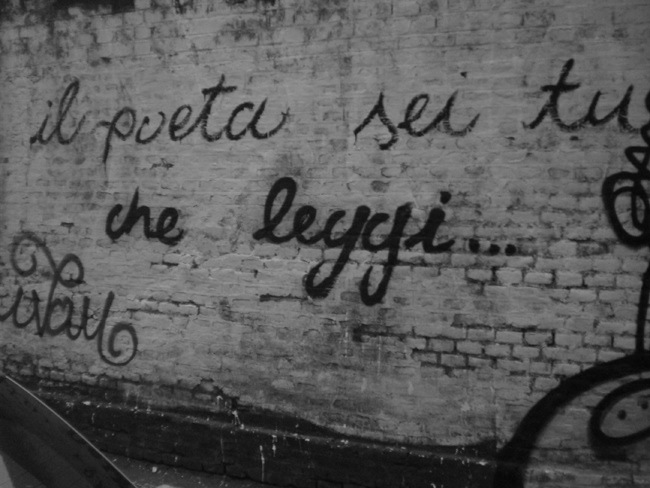 il poeta sei tu
che leggi...